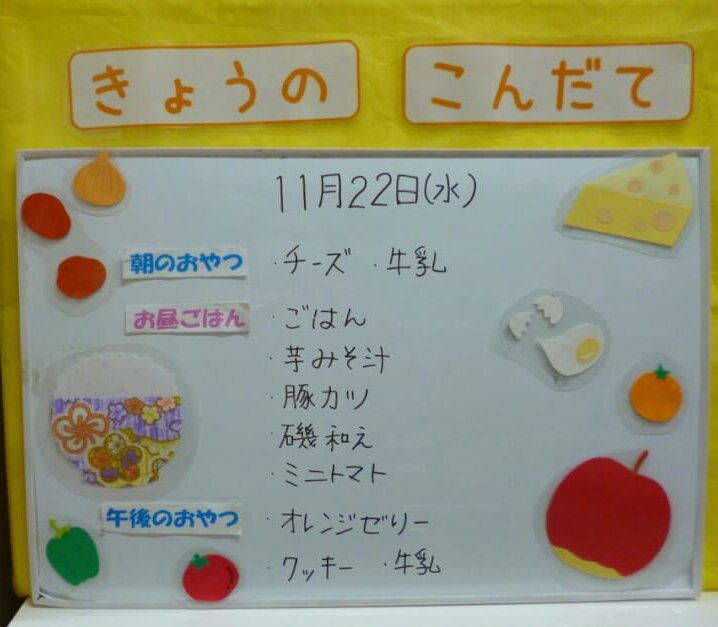 きょうの こんだて
11月22日(水)
朝のおやつ ・チーズ ・牛乳
お昼ごはん ・ごはん
・芋みそ汁
・豚カツ
・磯和え
・ミニトマト
午後のおやつ ・オレンジゼリー
・クッキー ・牛乳